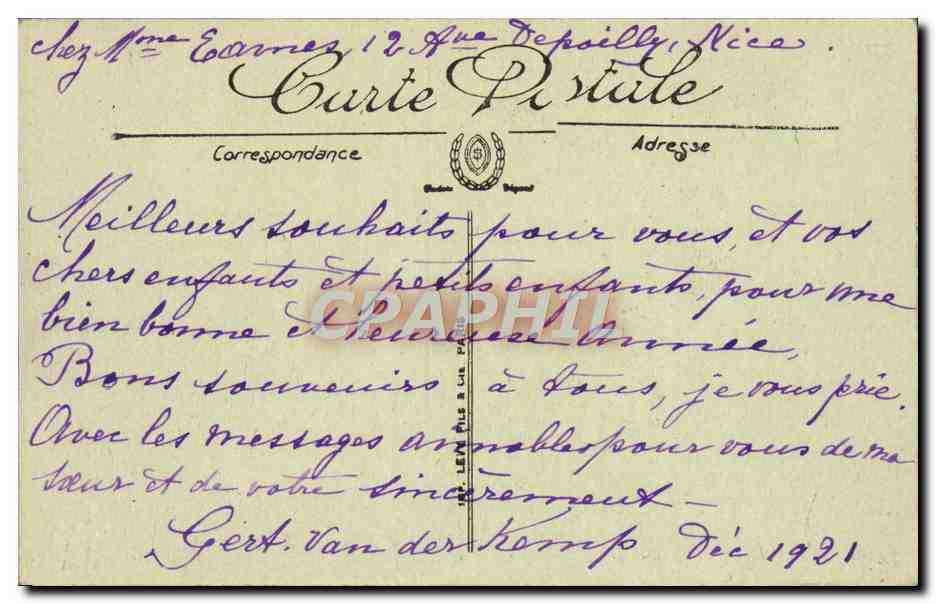 chez Mme Eames, 12 Ave Depoilly, Nice.
Carte Postale
Correspondance
Adresse
Meilleurs souhaits pour vous, et vos
chers enfants et petits enfants, pour une
bien bonne et heureuse Année,
CPAPHIL
Bons souvenirs à tous, je vous prie.
Avec les messages aimables pour vous de ma
sœur et de votre sincèrement –
Gert. Van der Kemp Déc 1921
IMP. LEVY FILS & Cie PARIS